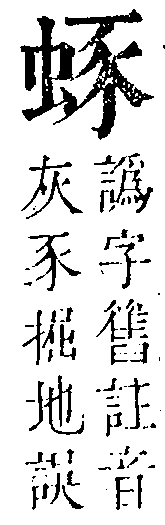 譌字舊註音
灰豕掘地誤